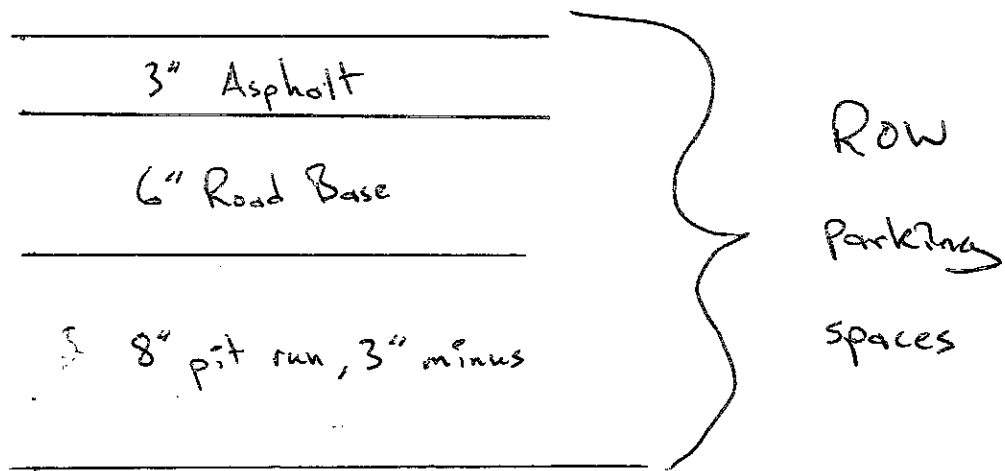 3" Asphalt
6" Road Base
8" pit run, 3" minus
ROW
parking
spaces